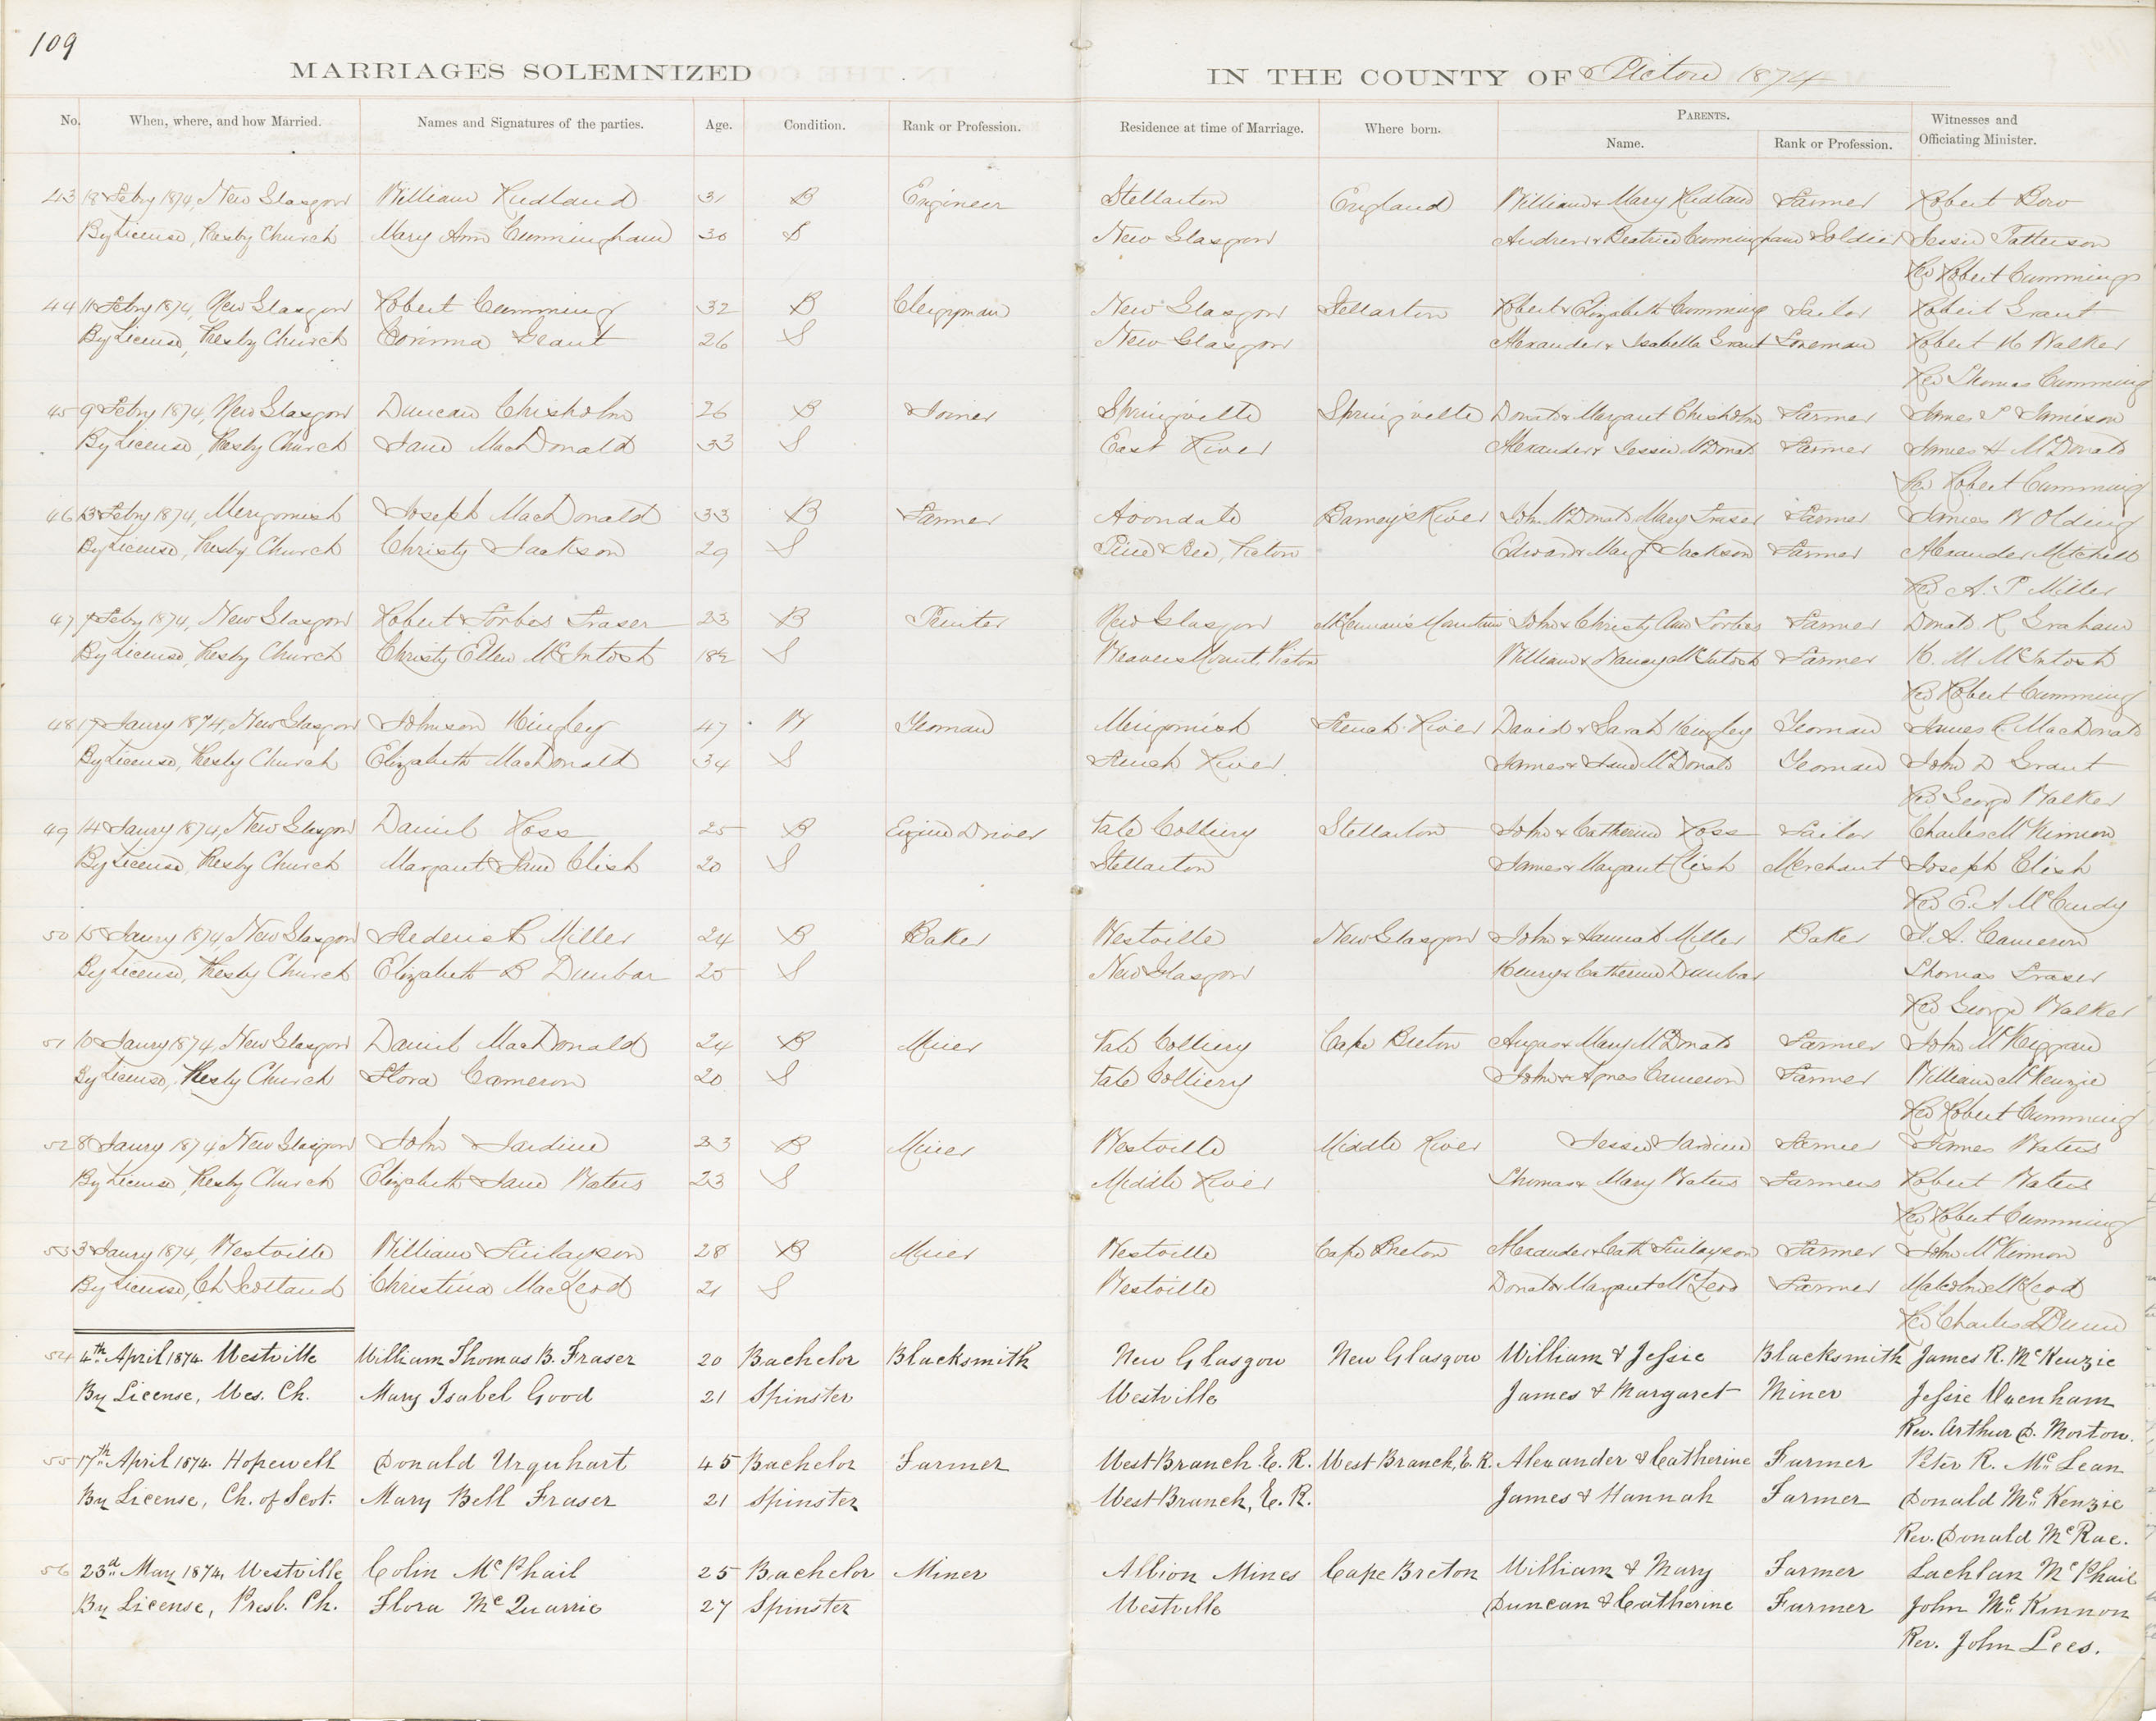 109
MARRIAGES SOLEMNIZED IN THE COUNTY OF Pictou 1874
No. When, where, and how Married. Names and Signatures of the parties. Age. Condition. Rank or Profession. Residence at time of Marriage. Where born. PARENTS. Witnesses and
Name. Rank or Profession. Officiating Minister.
43 18 Febry 1874, New Glasgow William Rudland 31 B Engineer Stellarton England William & Mary Rudland Farmer Robert Bow
By License, Presby Church Mary Ann Cunningham 30 S New Glasgow Andrew & Beatrice Cunningham Soldier Jessie Patterson
Rev Robert Cummings
44 11 Febry 1874, New Glasgow Robert Cumming 32 B Clergyman New Glasgow Stellarton Robert & Elizabeth Cumming Sailor Robert Grant
By License, Presby Church Corinna Grant 26 S New Glasgow Alexander & Isabella Grant Foreman Robert K Walker
Rev Thomas Cumming
45 9 Febry 1874, New Glasgow Duncan Chisholm 26 B Joiner Springville Springville Donald & Margaret Chisholm Farmer James P Jamieson
By License, Presby Church Jane MacDonald 33 S East River Alexander & Jessie McDonald Farmer James H McDonald
Rev Robert Cumming
46 13 Febry 1874, Merigomish Joseph MacDonald 33 B Farmer Avondale Barney's River John McDonald Mary Fraser Farmer James W Olding
By License, Presby Church Christy Jackson 29 S Pine Tree, Picton Edward & Margt Jackson Farmer Alexander Mitchell
Rev A. P Miller
47 Febry 1874, New Glasgow Robert Forbes Fraser 23 B Printer New Glasgow McLennan's Mountain John & Christy Ann Forbes Farmer Donald R Graham
By License, Presby Church Christy Ellen McIntosh 18½ S Weavers Mount, Picton William & Nancy McIntosh Farmer K. M McIntosh
Rev Robert Cumming
48 17 Jaury 1874, New Glasgow Johnson Kingley 47 W Yeoman Merigomish French River David & Sarah Kingley Yeoman James C. MacDonald
By License, Presby Church Elizabeth MacDonald 34 S French River James & Jane McDonald Yeoman John D Grant
Rev George Walker
49 14 Jaury 1874, New Glasgow Daniel Ross 25 B Engine Driver Vale Colliery Stellarton John & Catherine Ross Sailor Charles McKinnon
By License, Presby Church Margaret Jane Clish 20 S Stellarton James & Margaret Clish Merchant Joseph Clish
Rev E. A McCurdy
50 15 Jaury 1874, New Glasgow Frederick Miller 24 B Baker Westville New Glasgow John & Hannah Miller Baker J. A. Cameron
By License, Presby Church Elizabeth B Dunbar 25 S New Glasgow Henry & Catherine Dunbar Thomas Fraser
Rev George Walker
51 10 Jaury 1874, New Glasgow Daniel MacDonald 24 B Miner Vale Colliery Cape Breton Angus & Mary McDonald Farmer John McKiggan
By License, Presby Church Flora Cameron 20 S Vale Colliery John & Agnes Cameron Farmer William McKenzie
Rev Robert Cumming
52 8 Jaury 1874, New Glasgow John Jardine 23 B Miner Westville Middle River Jessie Jardine Farmer James Waters
By License, Presby Church Elizabeth Jane Waters 23 S Middle River Thomas & Mary Waters Farmers Robert Waters
Rev Robert Cumming
53 3 Jaury 1874, Westville William Finlayson 28 B Miner Westville Cape Breton Alexander & Cath Finlayson Farmer John McKinnon
By License, Ch Scotland Christina MacLeod 21 S Westville Donald & Margaret McLeod Farmer Malcolm McLeod
Rev Charles Dunn
54 4th April 1874. Westville William Thomas B. Fraser 20 Bachelor Blacksmith New Glasgow New Glasgow William & Jessie Blacksmith James R. McKenzie
By License, Wes. Ch. Mary Isabel Good 21 Spinster Westville James & Margaret Miner Jessie Uxenham
Rev. Arthur D. Morton.
55 17th April 1874. Hopewell Donald Urquhart 45 Bachelor Farmer West Branch E. R. West Branch, E. R. Alexander & Catherine Farmer Peter R. McLean
By License, Ch. of Scot. Mary Bell Fraser 21 Spinster West Branch, E. R. James & Hannah Farmer Donald McKenzie
Rev. Donald McRae.
56 23d May 1874, Westville Colin McPhail 25 Bachelor Miner Albion Mines Cape Breton William & Mary Farmer Lachlan McPhail
By License, Presb. Ch. Flora McQuarrie 27 Spinster Westville Duncan & Catherine Farmer John McKinnon
Rev. John Lees.